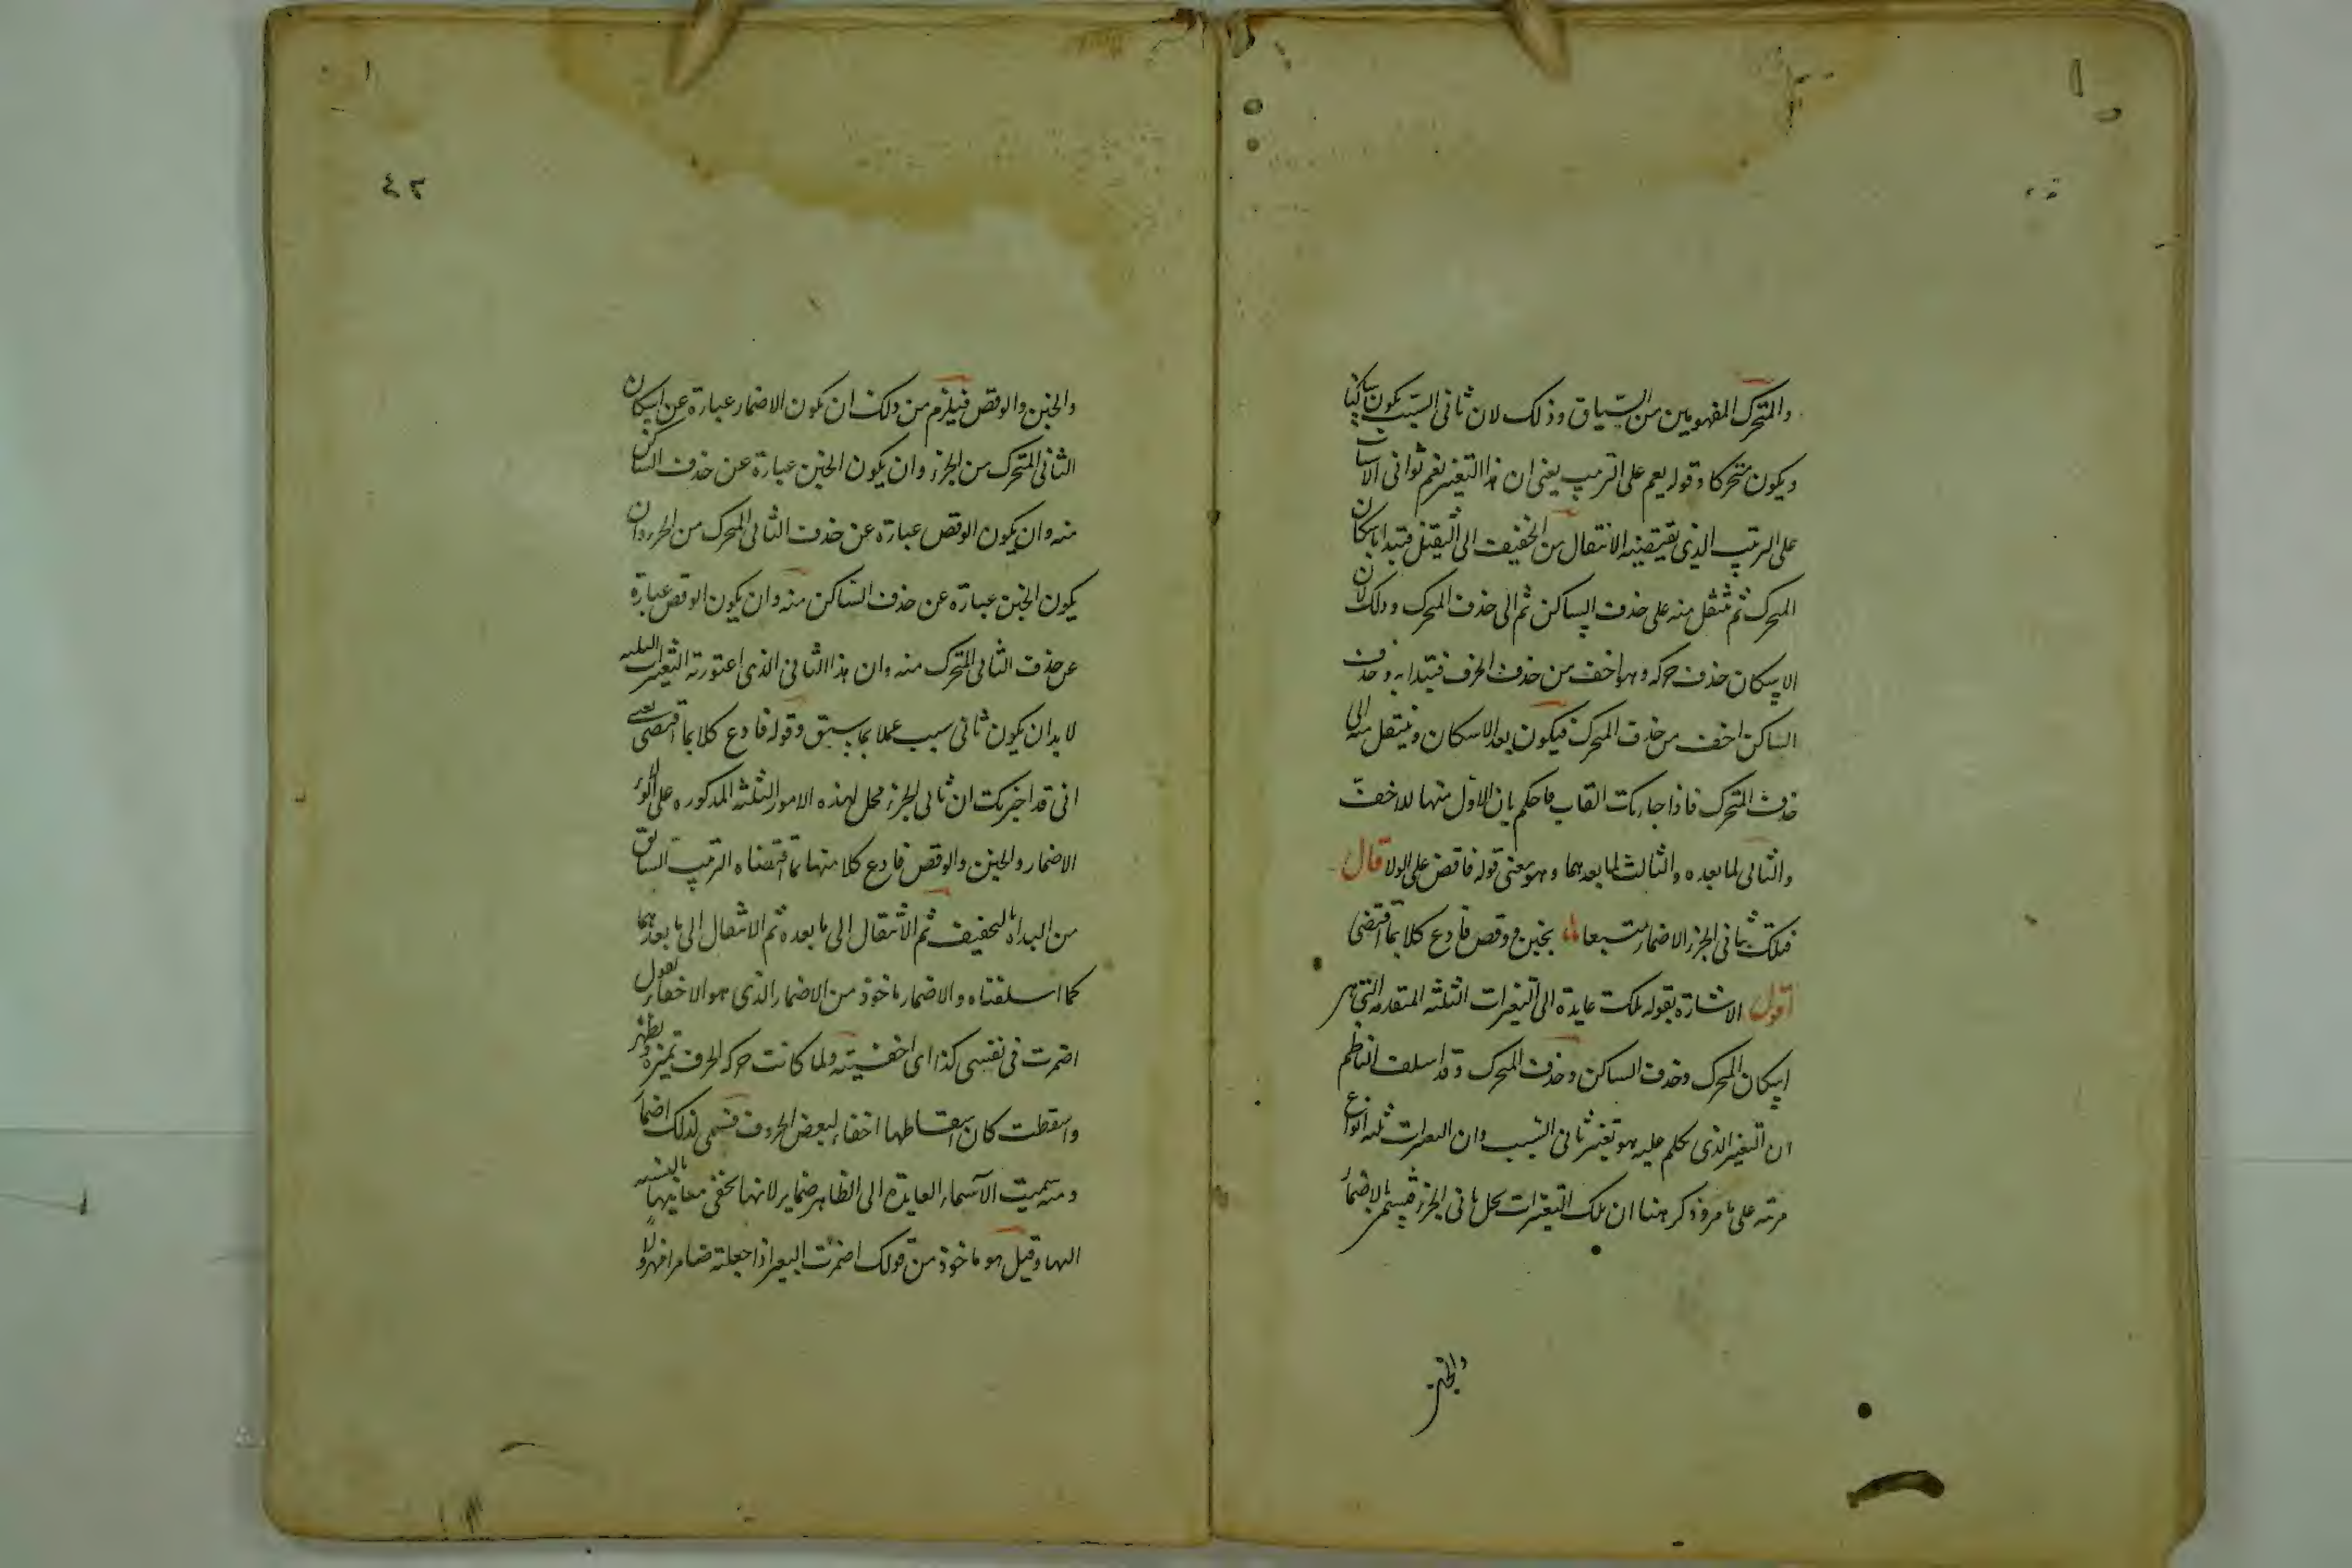 والمتحرك المفهومين من السياق وذلك لان ثانى السبب يكون ساكنا
ويكون متحركا وقوله يعم على الترتيب يعنى ان هذا التغيير يعم ثوانى الاسباب
على الترتيب الذى تقتضيه الانتقال من الخفيف الى الثقيل فتبدا باسكان
المتحرك ثم تنتقل منه على حذف الساكن ثم الى حذف المتحرك وذلك لان
الاسكان حذف حركه وهو اخف من حذف الحرف فتبدا به وحذف
الساكن اخف من حذف المتحرك فيكون بعد الاسكان وينتقل منه الى
حذف المتحرك فاذا جاءتك القاب فاحكم بان الاول منها للاخف
والثانى لما بعده والثالث لما بعدهما وهو معنى قوله فاقض على الولا قال
فتلك بثانى الجزء الاضمار متبعا بخبن ووقص فادع كلا بما اقتضى
اقول الاشارة بقوله تلك عايدة الى التغيرات الثلثه المتقدمه التى هى
اسكان المتحرك وحذف الساكن وحذف المتحرك وقد اسلف الناظم
ان التغيير الذى تكلم عليه هو تغيير ثانى السبب وان التغيرات ثلثه انواع
مرتبه على ما مر وذكر هنا ان تلك التغيرات تحل ثانى الجزء فيسمى الاضمار
والخبن
٢٤
والخبن والوقص فيلزم من ذلك ان يكون الاضمار عبارة عن اسكان
الثانى المتحرك من الجزء وان يكون الخبن عبارة عن حذف الساكن
منه وان يكون الوقص عبارة عن حذف الثانى المتحرك من الجزء وان
يكون الخبن عبارة عن حذف الساكن منه وان يكون الوقص عبارة
عن حذف الثانى المتحرك منه وان هذا الثانى الذى اعتورته التغيرات الثلثه
لا بد ان يكون ثانى سبب عملا بما سبق وقوله فادع كلا بما اقتضى يعنى
انى قد اخبرتك ان ثانى الجزء محل لهذه الامور الثلثه المذكوره على
الاضمار والخبن والوقص فادع كلا منها بما اقتضاه الترتيب السابق
من البداه بالخفيف ثم الانتقال الى ما بعده ثم الانتقال الى ما بعدهما
كما اسلفناه والاضمار ماخوذ من الاضمار الذى هو الاخفاء تقول
اضمرت فى نفسى كذا اى اخفيته ولما كانت حركه الحرف تميزه وتظهر
واسقطت كان اسقاطها اخفاء لبعض الحروف فسمى لذلك اضمارا
ومنه سميت الاسماء العايدة الى الظاهر ضماير لانها تخفى معانيها بالنسبه
اليها وقيل هو ماخوذ من قولك اضمرت البعير اذا جعلته ضامرا مهزولا